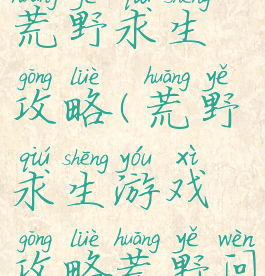 huāng yě qiú shēng
荒野求生
gōng lüè huāng yě
攻略(荒野
qiú shēng yóu xì
求生游戏
gōng lüè huāng yě wèn
攻略荒野问